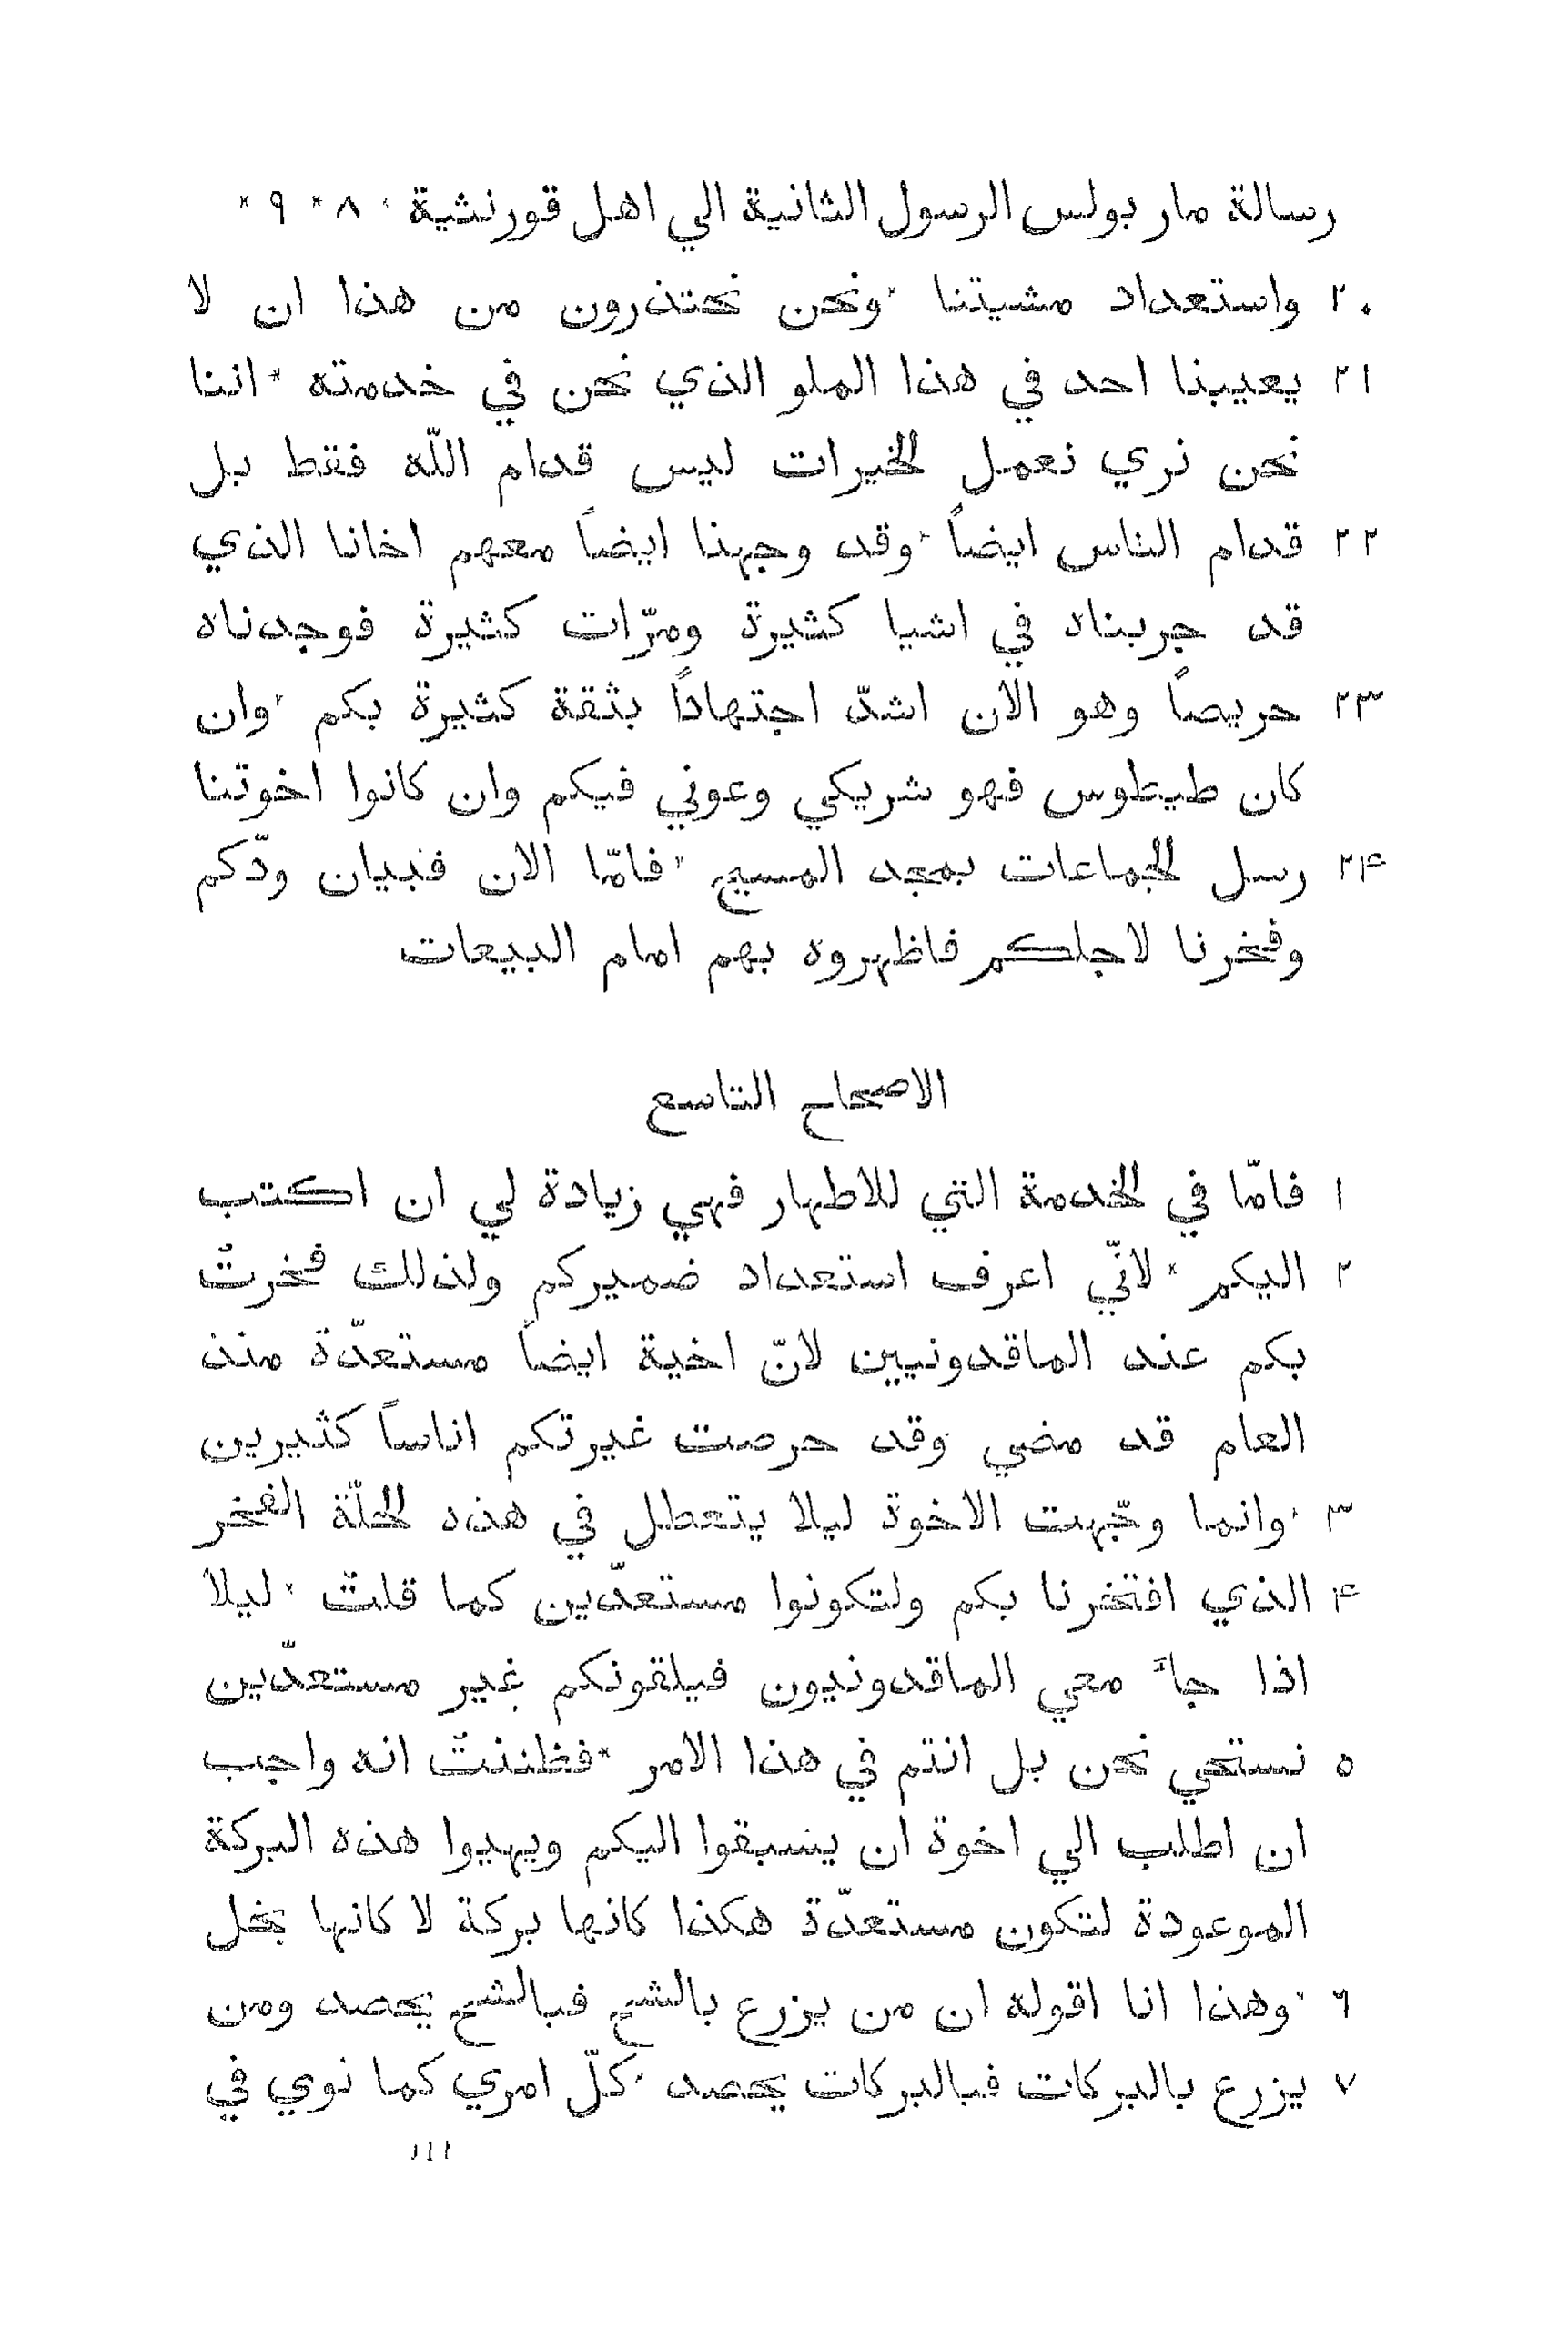 رسالة مار بولس الرسول الثانية الي اهل قورنشية ٠ ٨ * ٩ *
٢٠ واستعداد مشيتنا * ونحن نحتذرون من هذا ان لا
٢١ يعيبنا احد في هذا الملو الذي نحن في خدمته * اننا
نحن نري نعمل الخيرات ليس قدام اللّه فقط بل
٢٢ قدام الناس ايضاً * وقد وجهنا ايضاً معهم اخانا الذي
قد جربناه في اشيا كثيرة ومرّات كثيرة فوجدناه
٢٣ حريصاً وهو الان اشدّ اجتهاداً بثقة كثيرة بكم * وان
كان طيطوس فهو شريكي وعوني فيكم وان كانوا اخوتنا
٢۴ رسل الجماعات بمجد المسيح * فامّا الان فبيان ودّكم
وفخرنا لاجلكم فاظهروه بهم امام البيعات
الاصحاح التاسع
١ فامّا في الخدمة التي للاطهار فهي زيادة لي ان اكتب
٢ اليكم * لانّي اعرف استعداد ضميركم ولذلك فخرتُ
بكم عند الماقدونيين لانّ اخية ايضاً مستعدّة منذ
العام قد مضي وقد حرصت غيرتكم اناساً كثيرين
٣ * وانما وجّهت الاخوة ليلا يتعطل في هذه الخلّة الفخر
۴ الذي افتخرنا بكم ولتكونوا مستعدّين كما قلتُ * ليلا
اذا جاَء معي الماقدونيون فيلقونكم بغير مستعدّين
٥ نستحي نحن بل انتم في هذا الامر * فظننتُ انه واجب
ان اطلب الي اخوة ان ينسبقوا اليكم ويهيوا هذه البركة
الموعودة لتكون مستعدّة هكذا كانها بركة لا كانها بخل
٦ * وهذا انا اقوله ان من يزرع بالشح فبالشح يحصد ومن
٧ يزرع بالبركات فبالبركات يحصد * كلّ امري كما نوي في